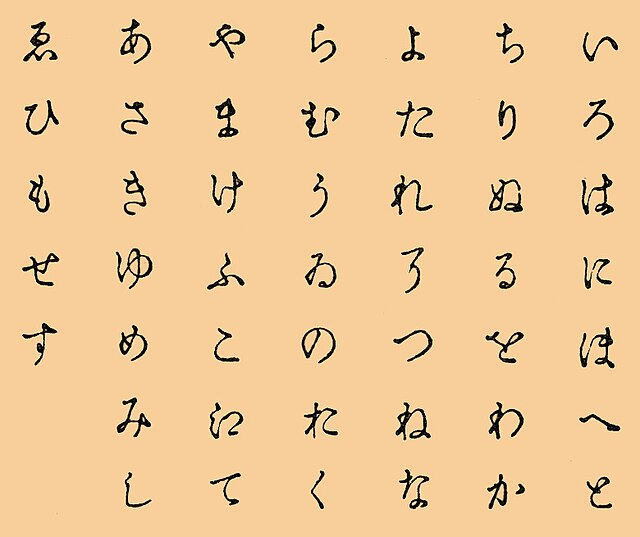 いろはにほへと
ちりぬるをわか
よたれそつねな
らむうゐのおく
やまけふこ𛀁て
あさきゆめみし
ゑひもせす